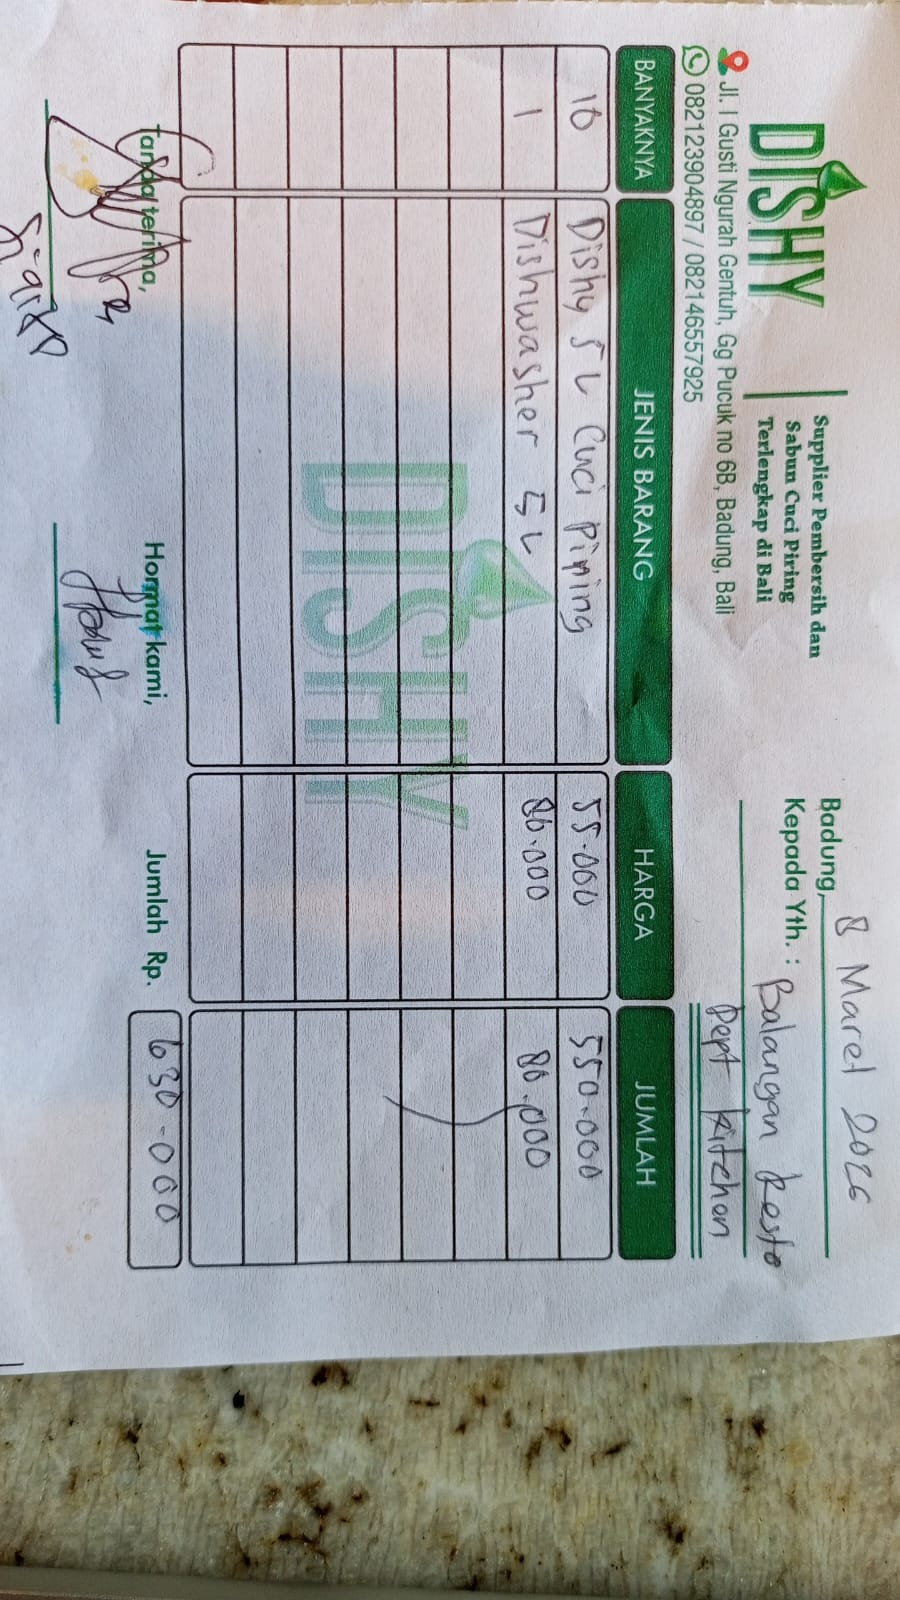 DISHY
Supplier Pembersih dan
Sabun Cuci Piring
Terlengkap di Bali
Jl. I Gusti Ngurah Gentuh, Gg Pucuk no 6B, Badung, Bali
082123904897 / 082146557925
Badung, 8 Maret 2026
Kepada Yth. : Balangan Resto
Dept Kitchen
BANYAKNYA JENIS BARANG HARGA JUMLAH
10 Dishy 5 L Cuci Piring 55.000 550.000
1 Dishwasher 5 L 80.000 80.000
DISHY
Tanda terima, Hormat kami, Jumlah Rp. 630.000